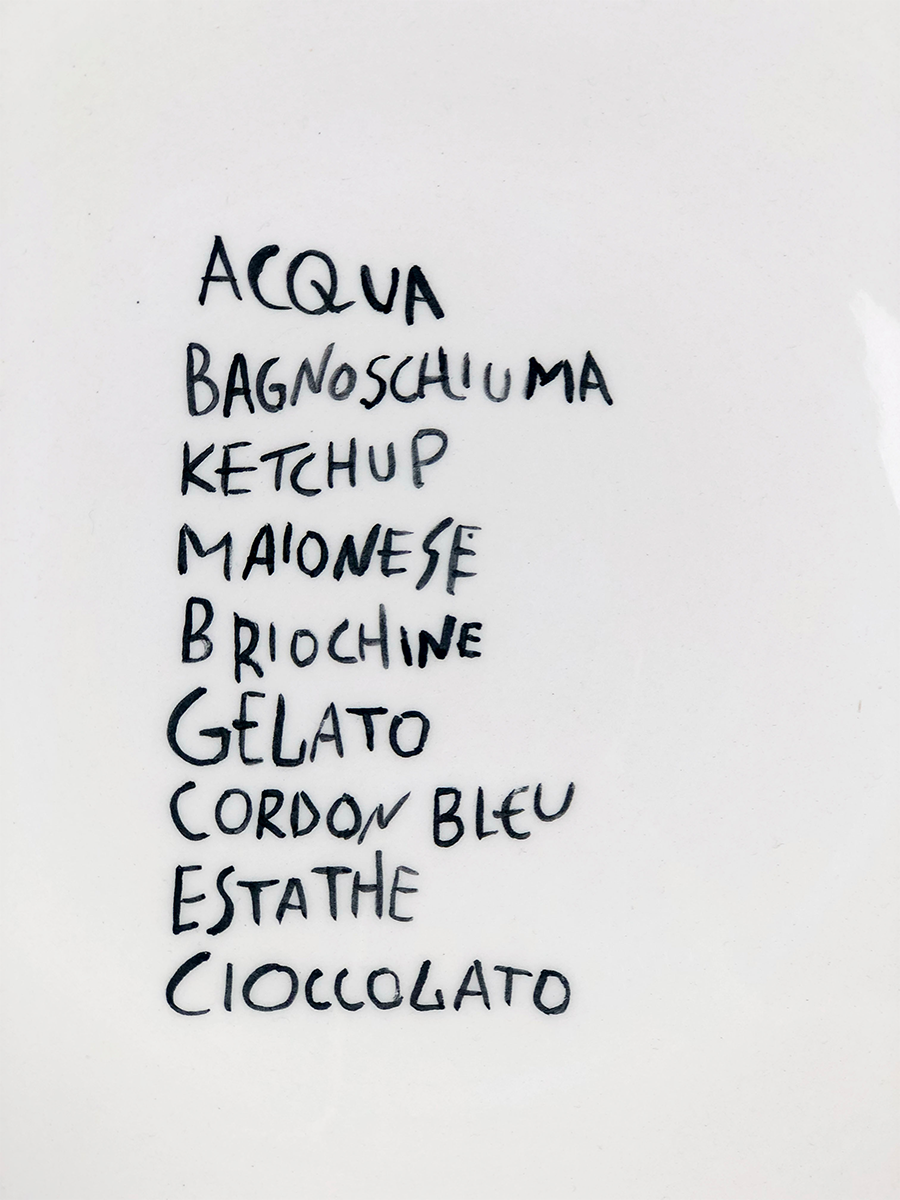 ACQUA
BAGNOSCHIUMA
KETCHUP
MAIONESE
BRIOCHINE
GELATO
CORDON BLEU
ESTATHE
CIOCCOLATO